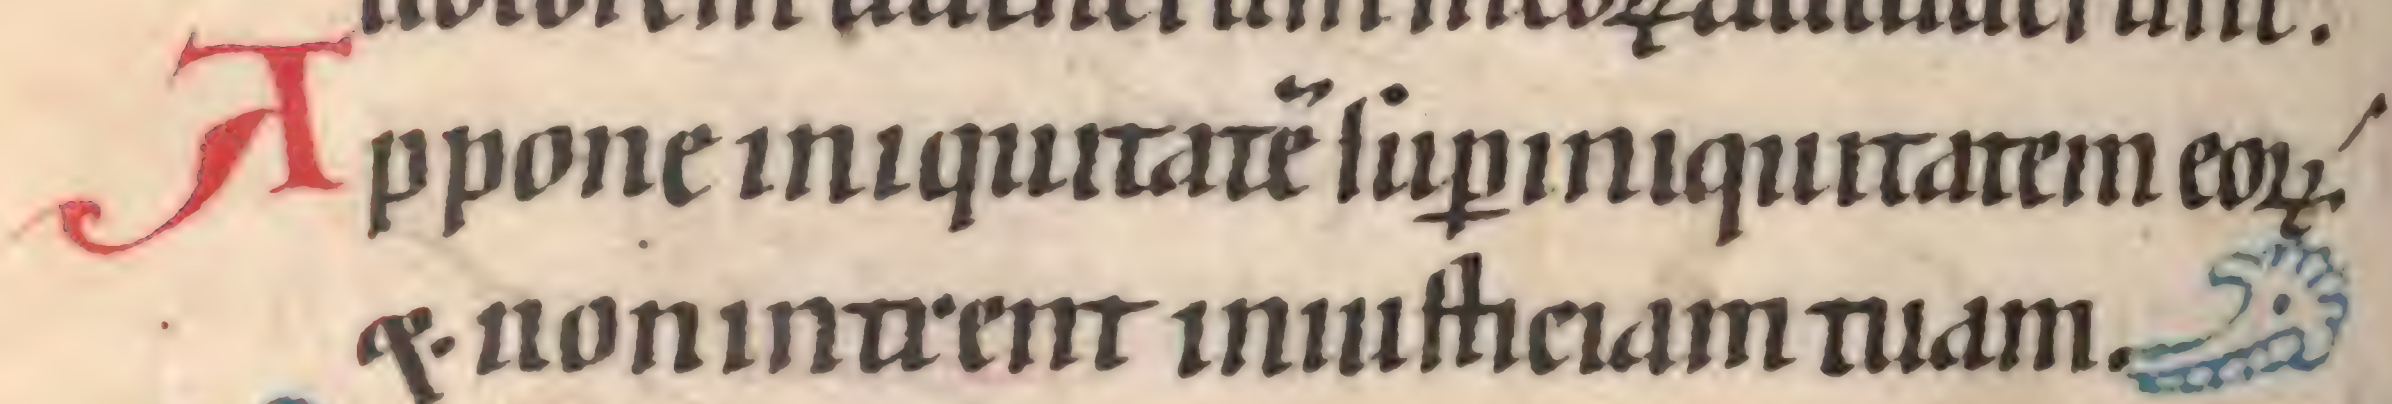 Appone iniquitatē sup̲ iniquitatem eoꝝ
⁊ non intrent in iusticiam tuam.